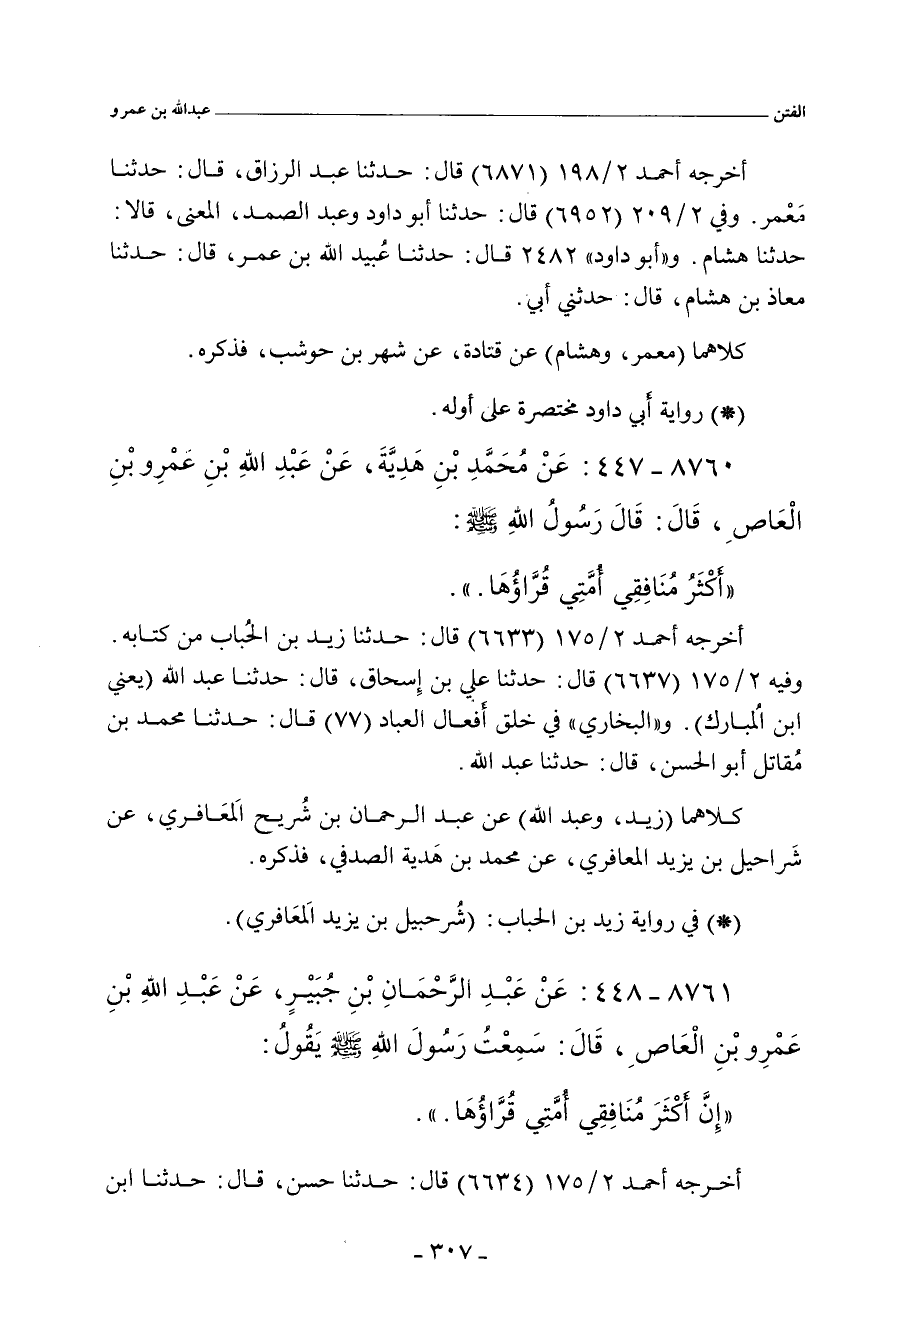 الفتن ــــــــــــــــــــــــــــــــــــــــ عبدالله بن عمرو
أخرجه أحمد ٢/ ١٩٨ (٦٨٧١) قال: حدثنا عبد الرزاق، قال: حدثنا
مَعْمر. وفي ٢/ ٢٠٩ (٦٩٥٢) قال: حدثنا أبو داود وعبد الصمد، المعنى، قالا:
حدثنا هشام. و«أبو داود» ٢٤٨٢ قال: حدثنا عُبيد الله بن عمر، قال: حدثنا
معاذ بن هشام، قال: حدثني أبي.
كلاهما (معمر، وهشام) عن قتادة، عن شهر بن حوشب، فذكره.
(*) رواية أبي داود مختصرة على أوله.
٨٧٦٠ - ٤٤٧: عَنْ مُحَمَّدِ بْنِ هَدِيَّةَ، عَنْ عَبْدِ اللهِ بْنِ عَمْرِو بْنِ
الْعَاصِ، قَالَ: قَالَ رَسُولُ اللهِ ﷺ:
«أَكْثَرُ مُنَافِقِي أُمَّتِي قُرَّاؤُهَا.».
أخرجه أحمد ٢/ ١٧٥ (٦٦٣٣) قال: حدثنا زيد بن الحُباب من كتابه.
وفيه ٢/ ١٧٥ (٦٦٣٧) قال: حدثنا علي بن إسحاق، قال: حدثنا عبد الله (يعني
ابن المُبارك). و«البخاري» في خلق أفعال العباد (٧٧) قال: حدثنا محمد بن
مُقاتل أبو الحسن، قال: حدثنا عبد الله.
كلاهما (زيد، وعبد الله) عن عبد الرحمان بن شُريح المَعَافري، عن
شَراحيل بن يزيد المعافري، عن محمد بن هَدية الصدفي، فذكره.
(*) في رواية زيد بن الحباب: (شُرحبيل بن يزيد المَعَافري).
٨٧٦١ - ٤٤٨: عَنْ عَبْدِ الرَّحْمَانِ بْنِ جُبَيْرٍ، عَنْ عَبْدِ اللهِ بْنِ
عَمْرِو بْنِ الْعَاصِ، قَالَ: سَمِعْتُ رَسُولَ اللهِ ﷺ يَقُولُ:
«إِنَّ أَكْثَرَ مُنَافِقِي أُمَّتِي قُرَّاؤُهَا.».
أخرجه أحمد ٢/ ١٧٥ (٦٦٣٤) قال: حدثنا حسن، قال: حدثنا ابن
- ٣٠٧ -